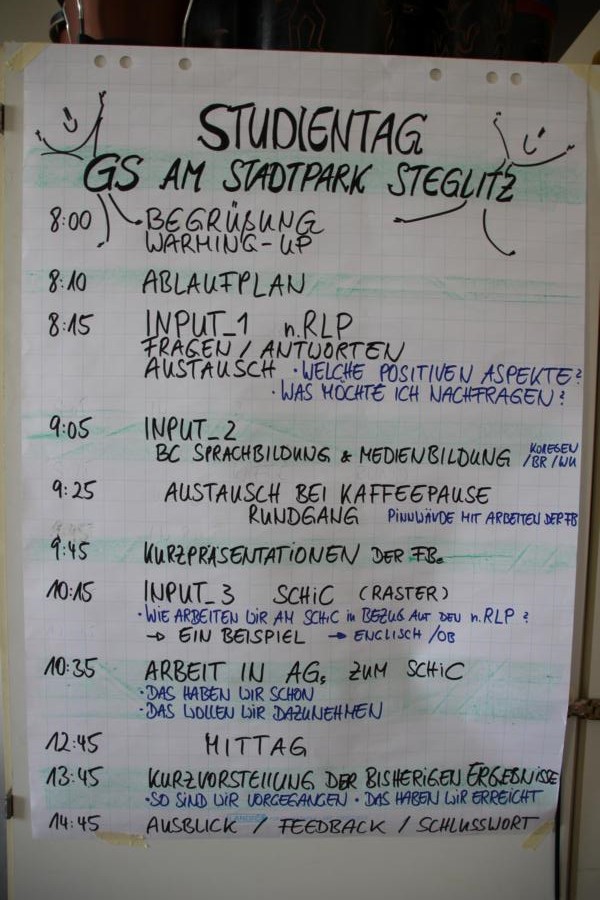 STUDIENTAG
GS AM STADTPARK STEGLITZ
8:00 BEGRÜßUNG
WARMING-UP
8:10 ABLAUFPLAN
8:15 INPUT_1 n.RLP
FRAGEN / ANTWORTEN
AUSTAUSCH · WELCHE POSITIVEN ASPEKTE?
· WAS MÖCHTE ICH NACHFRAGEN?
9:05 INPUT_2
BC SPRACHBILDUNG & MEDIENBILDUNG /BR /WU
9:25 AUSTAUSCH BEI KAFFEEPAUSE
RUNDGANG PINNWÄNDE MIT ARBEITEN DER FB
9:45 KURZPRÄSENTATIONEN DER FBe
10:15 INPUT_3 SCHiC (RASTER)
· WIE ARBEITEN WIR AM SCHiC in BEZUG AUF DEN n.RLP?
→ EIN BEISPIEL → ENGLISCH /OB
10:35 ARBEIT IN AGs ZUM SCHiC
· DAS HABEN WIR SCHON
· DAS WOLLEN WIR DAZUNEHMEN
12:45 MITTAG
13:45 KURZVORSTELLUNG DER BISHERIGEN ERGEBNISSE
· SO SIND WIR VORGEGANGEN · DAS HABEN WIR ERREICHT
14:45 AUSBLICK / FEEDBACK / SCHLUSSWORT